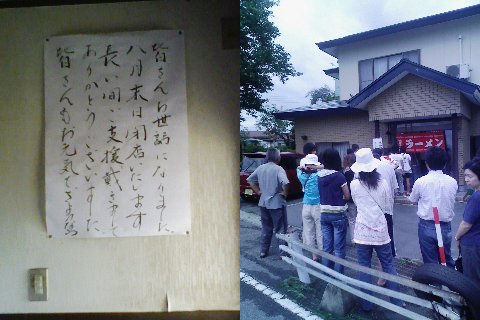 皆さんお世話になりました
八月末に閉店いたします
長い間ご支援戴きまして
ありがとうございました
皆さんもお元気で
ラーメン